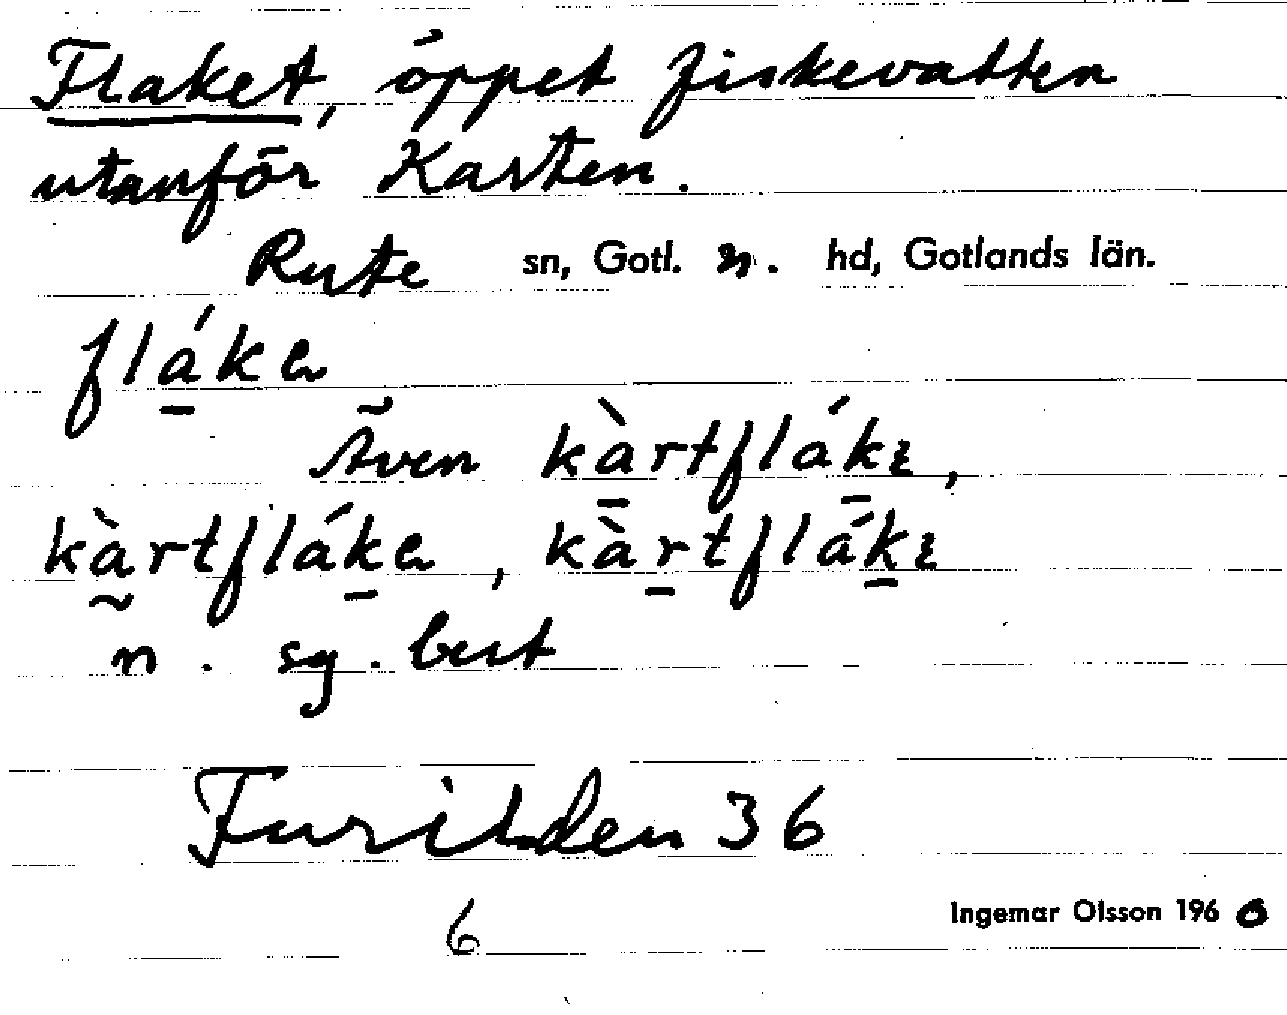 Flaket, öppet fiskevatten
utanför Karten.
Rute sn, Gotl. n. hd, Gotlands län.
flá̱ka
Även kà̱rtflá̱kz,
kà̰rtfláḵa, kàṟtfláḵz
n. sg. best
Furilden 36
6
Ingemar Olsson 1960